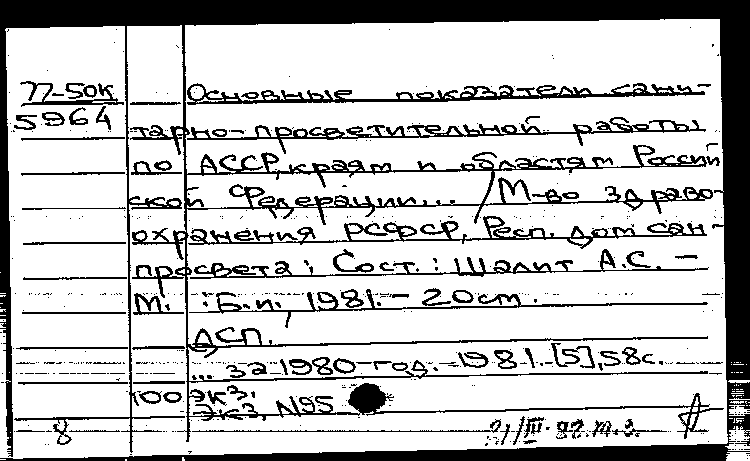 77-50к Основные показатели сани-
5964 тарно-просветительной работы
по АССР, краям и областям Россий
ской Федерации... / М-во здраво-
охранения РСФСР, Респ. дом сан-
просвета; Сост.: Шалит А.С. –
М. : Б.и., 1981. – 20см.
ДСП.
... за 1980 год. – 1981. [5], 58с.
100 экз.
Экз. №95
8 21/III-82.т.з.